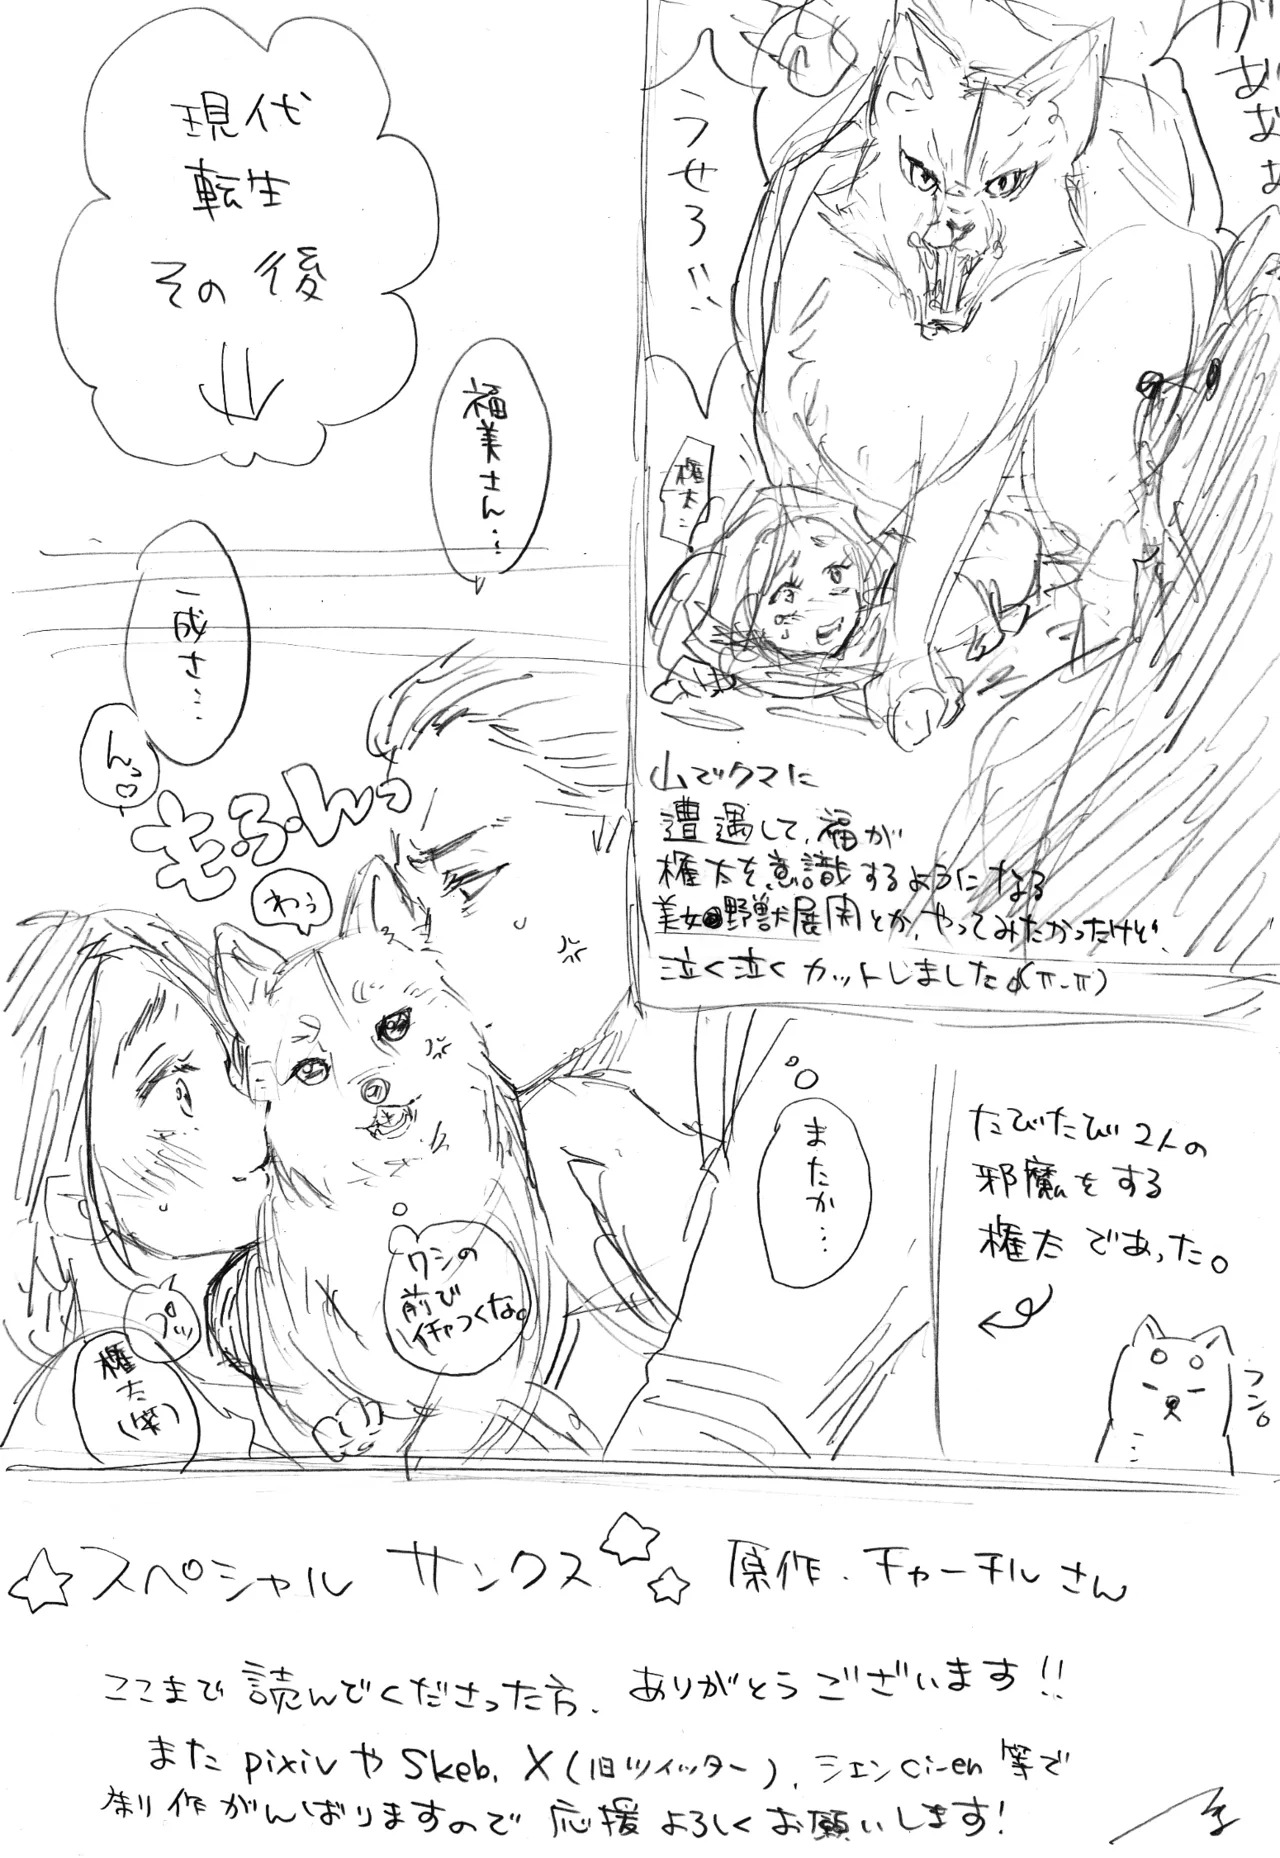 がああぁ
うせろ!!
権太…
山でクマに
遭遇して、福が
権太を意識するようになる
美女野獣展開とか、やってみたかったけど、
泣く泣くカットしました。(π-π)
現代
転生
その後
福美さん…
一成さ…
んっ♡
もふんっ
わぅ
ワシの
前で
イチャつくな。
プッ
権太(笑)
またか…
たびたび2人の
邪魔をする
権太であった。
フン。
☆スペシャル サンクス☆☆ 原作.チャーチルさん
ここまで読んでくださった方、ありがとうございます!!
また pixivや Skeb, X(旧ツイッター), シエンci-en 等で
制作がんばりますので 応援よろしくお願いします!